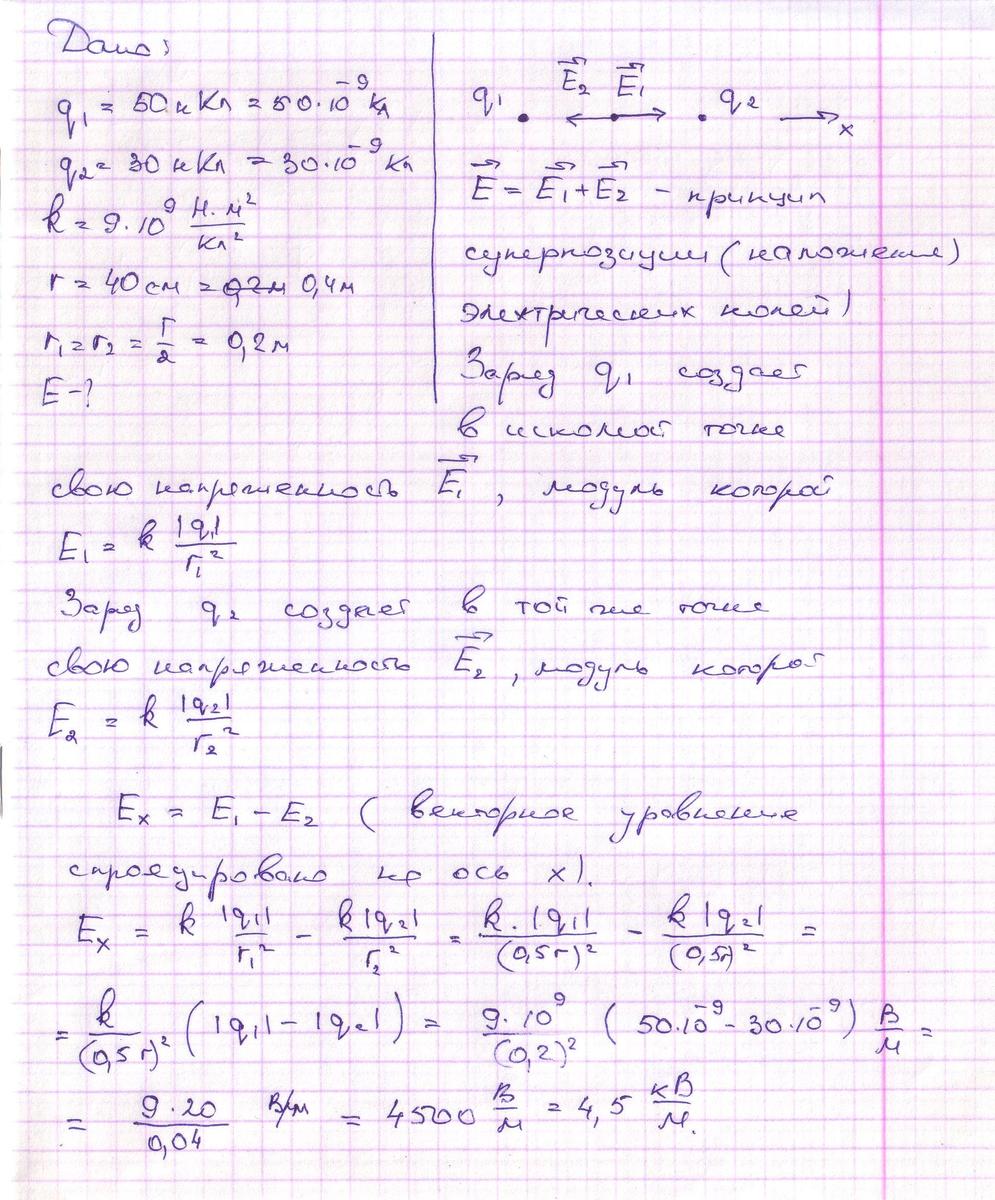 Дано:
q₁ = 50 нКл = 50·10⁻⁹ Кл
q₂ = 30 нКл = 30·10⁻⁹ Кл
k = 9·10⁹ Н·м²/Кл²
r = 40 см = 0,2м 0,4м
r₁ = r₂ = r/2 = 0,2 м
E - ?
q₁ E₂ E₁ q₂ x
E = E₁ + E₂ – принцип
суперпозиции (наложения)
электрических полей)
Заряд q₁ создает
в искомой точке
свою напряженность E₁, модуль которой
E₁ = k |q₁|/r₁²
Заряд q₂ создает в той же точке
свою напряженность E₂, модуль которой
E₂ = k |q₂|/r₂²
Eₓ = E₁ – E₂ (векторное уравнение
спроецировано на ось x).
Eₓ = k |q₁|/r₁² – k|q₂|/r₂² = k·|q₁|/(0,5r)² – k|q₂|/(0,5r)² =
= k/(0,5r)² (|q₁| – |q₂|) = 9·10⁹/(0,2)² (50·10⁻⁹ – 30·10⁻⁹) В/м =
= 9·20/0,04 В/м = 4500 В/м = 4,5 кВ/м.